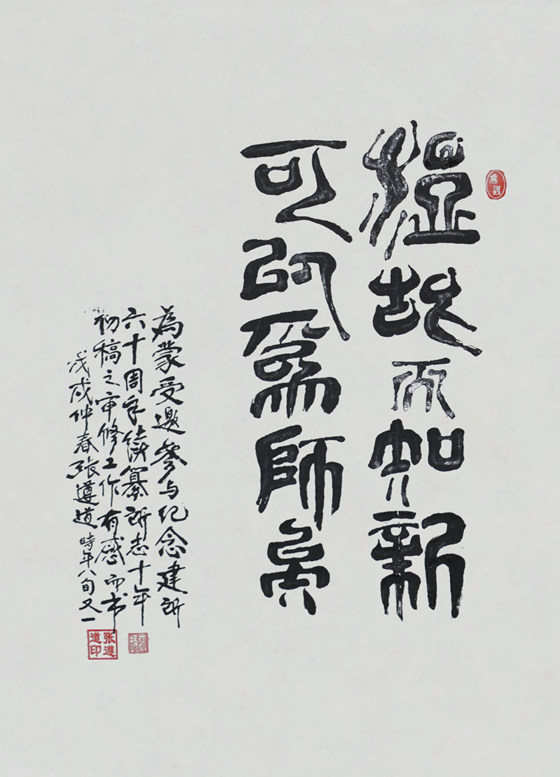 溫故而知新
可以爲師矣
為蒙受邀參与纪念建所
六十周年續纂所志十年
初稿之审修工作有感而书
戊戌仲春張遵道時年八旬又一
张遵道印